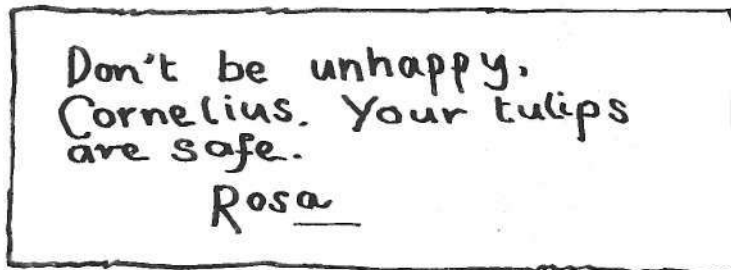 Don't be unhappy,
Cornelius. Your tulips
are safe.
Rosa